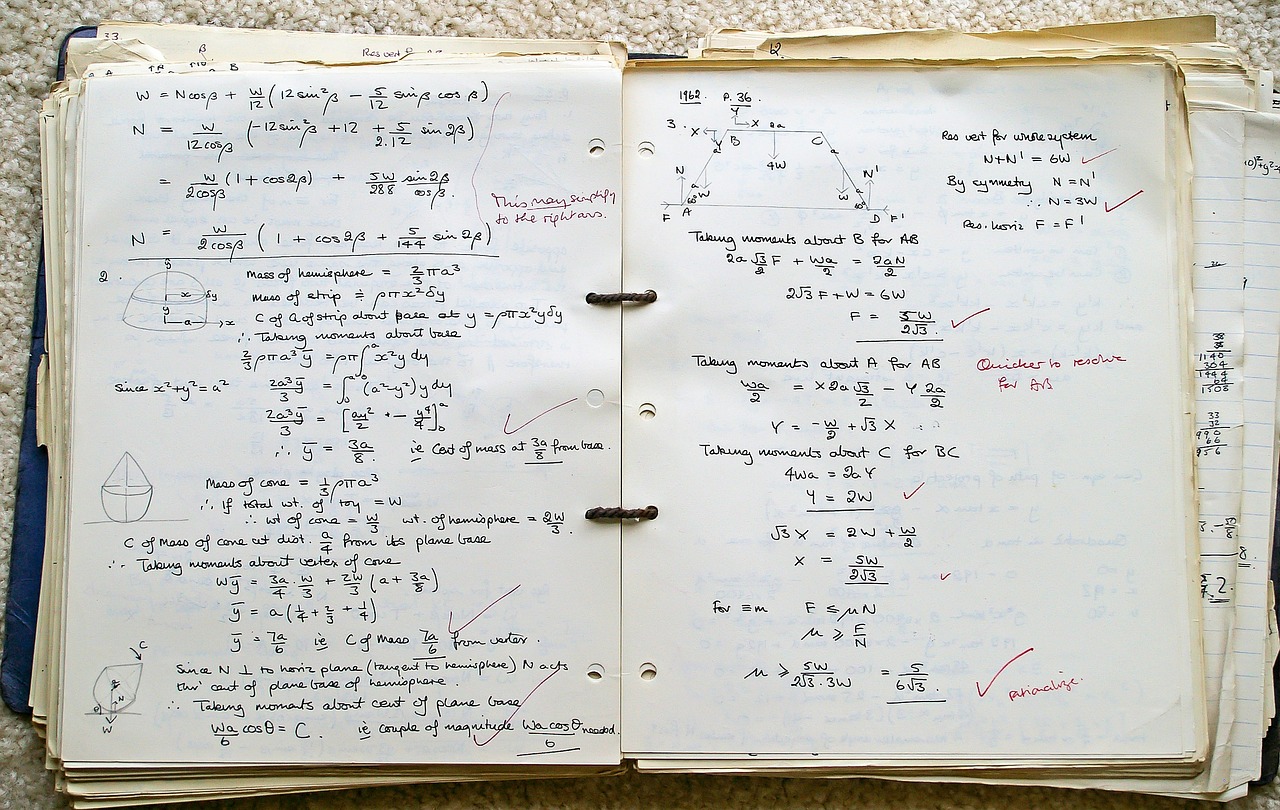 33.
β
Res vert
B
W = Ncosβ + W/12 (12sin²β − 5/12 sinβ cosβ)
N = W/12cosβ (−12sin²β + 12 + 5/2.12 sin2β)
= W/2cosβ (1 + cos2β) + 5W/288 sin2β/cosβ.
This may simplify
to the right ans.
N = W/2cosβ (1 + cos2β + 5/144 sin2β)
2.
y
x δy
y
a x
Mass of hemisphere = 2/3 πa³
Mass of strip ≑ ρπx²δy
C of G of strip about base at y = ρπx²yδy
∴ Taking moments about base
2/3 ρπa³ȳ = ρπ∫₀ᵃ x²y dy
Since x²+y²=a² 2a³ȳ/3 = ∫₀ᵃ (a²−y²)y dy
2a³ȳ/3 = [ay²/2 − y⁴/4]₀ᵃ
∴ ȳ = 3a/8 ie Cent of mass at 3a/8 from base.
Mass of cone = 1/3 ρπa³
∴ If total wt. of toy = W
∴ wt of cone = W/3 wt. of hemisphere = 2W/3.
C of Mass of cone at dist. a/4 from its plane base
∴ Taking moments about vertex of cone
Wȳ = 3a/4 . W/3 + 2W/3 (a + 3a/8)
ȳ = a(1/4 + 2/3 + 1/4)
ȳ = 7a/6 ie C of Mass 7a/6 from vertex.
C
N
θ
W
Since N ⊥ to horiz plane (tangent to hemisphere) N acts
thro' cent of plane base of hemisphere.
∴ Taking moments about cent of plane base
Wa/6 cosθ = C. ie couple of magnitude Wa cosθ/6 needed.
62.
1962. P. 36.
3.
Y
X X 2a
B C
Y a a
4W
N N'
a a
W W
60° 60°
F A D F'
Res vert for whole system
N+N' = 6W
By symmetry N = N'
∴ N = 3W
Res. horiz F = F'
Taking moments about B for AB
2a √3/2 F + Wa/2 = 2aN/2
2√3 F + W = 6W
F = 5W/2√3.
Taking moments about A for AB
Quicker to resolve
for AB
Wa/2 = X 2a √3/2 − Y 2a/2
Y = −W/2 + √3 X
Taking moments about C for BC
4Wa = 2aY
Y = 2W
√3 X = 2W + W/2
X = 5W/2√3
For ≡m F ≤ μN
μ ≥ F/N
μ ≥ 5W/2√3.3W = 5/6√3.
rationalize.
38
38
1140
304
1444
64
1508
33
32
990
66
956